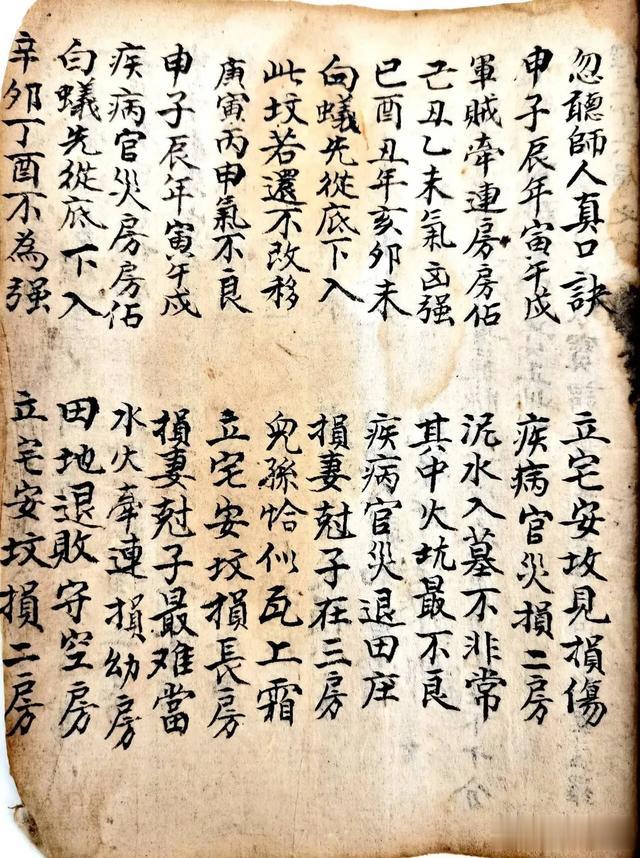 忽聽師人真口訣 立宅安坟見損傷
申子辰年寅午戍 疾病官災損二房
軍賊牽連房房佔 泥水入墓不非常
己丑乙未氣凶强 其中火坑最不良
巳酉丑年亥卯未 疾病官災退田庄
白蟻先從底下入 損妻尅子在三房
此坟若還不改移 兒孫恰似瓦上霜
庚寅丙申氣不良 立宅安坟損長房
申子辰年寅午戍 損妻尅子最难當
疾病官災房房佔 水火牽連損幼房
白蟻先從底下入 田地退敗守空房
辛卯丁酉不為强 立宅安坟損二房